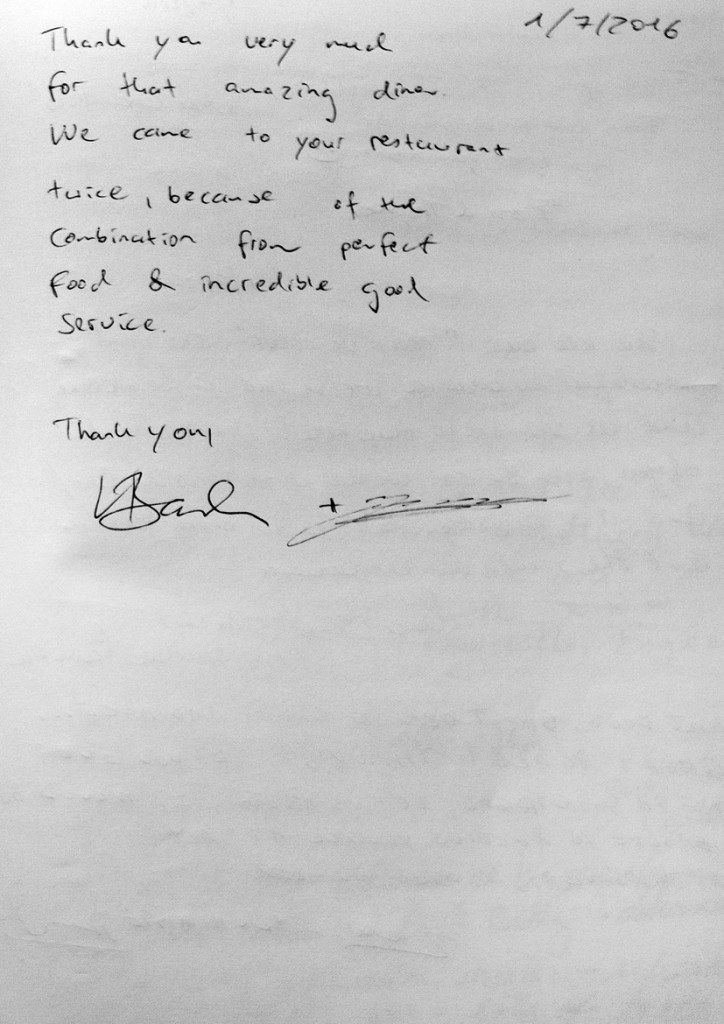 1/7/2016
Thank you very much
for that amazing diner.
We came to your restaurant
twice, because of the
combination from perfect
food & incredible good
service.
Thank you,
+